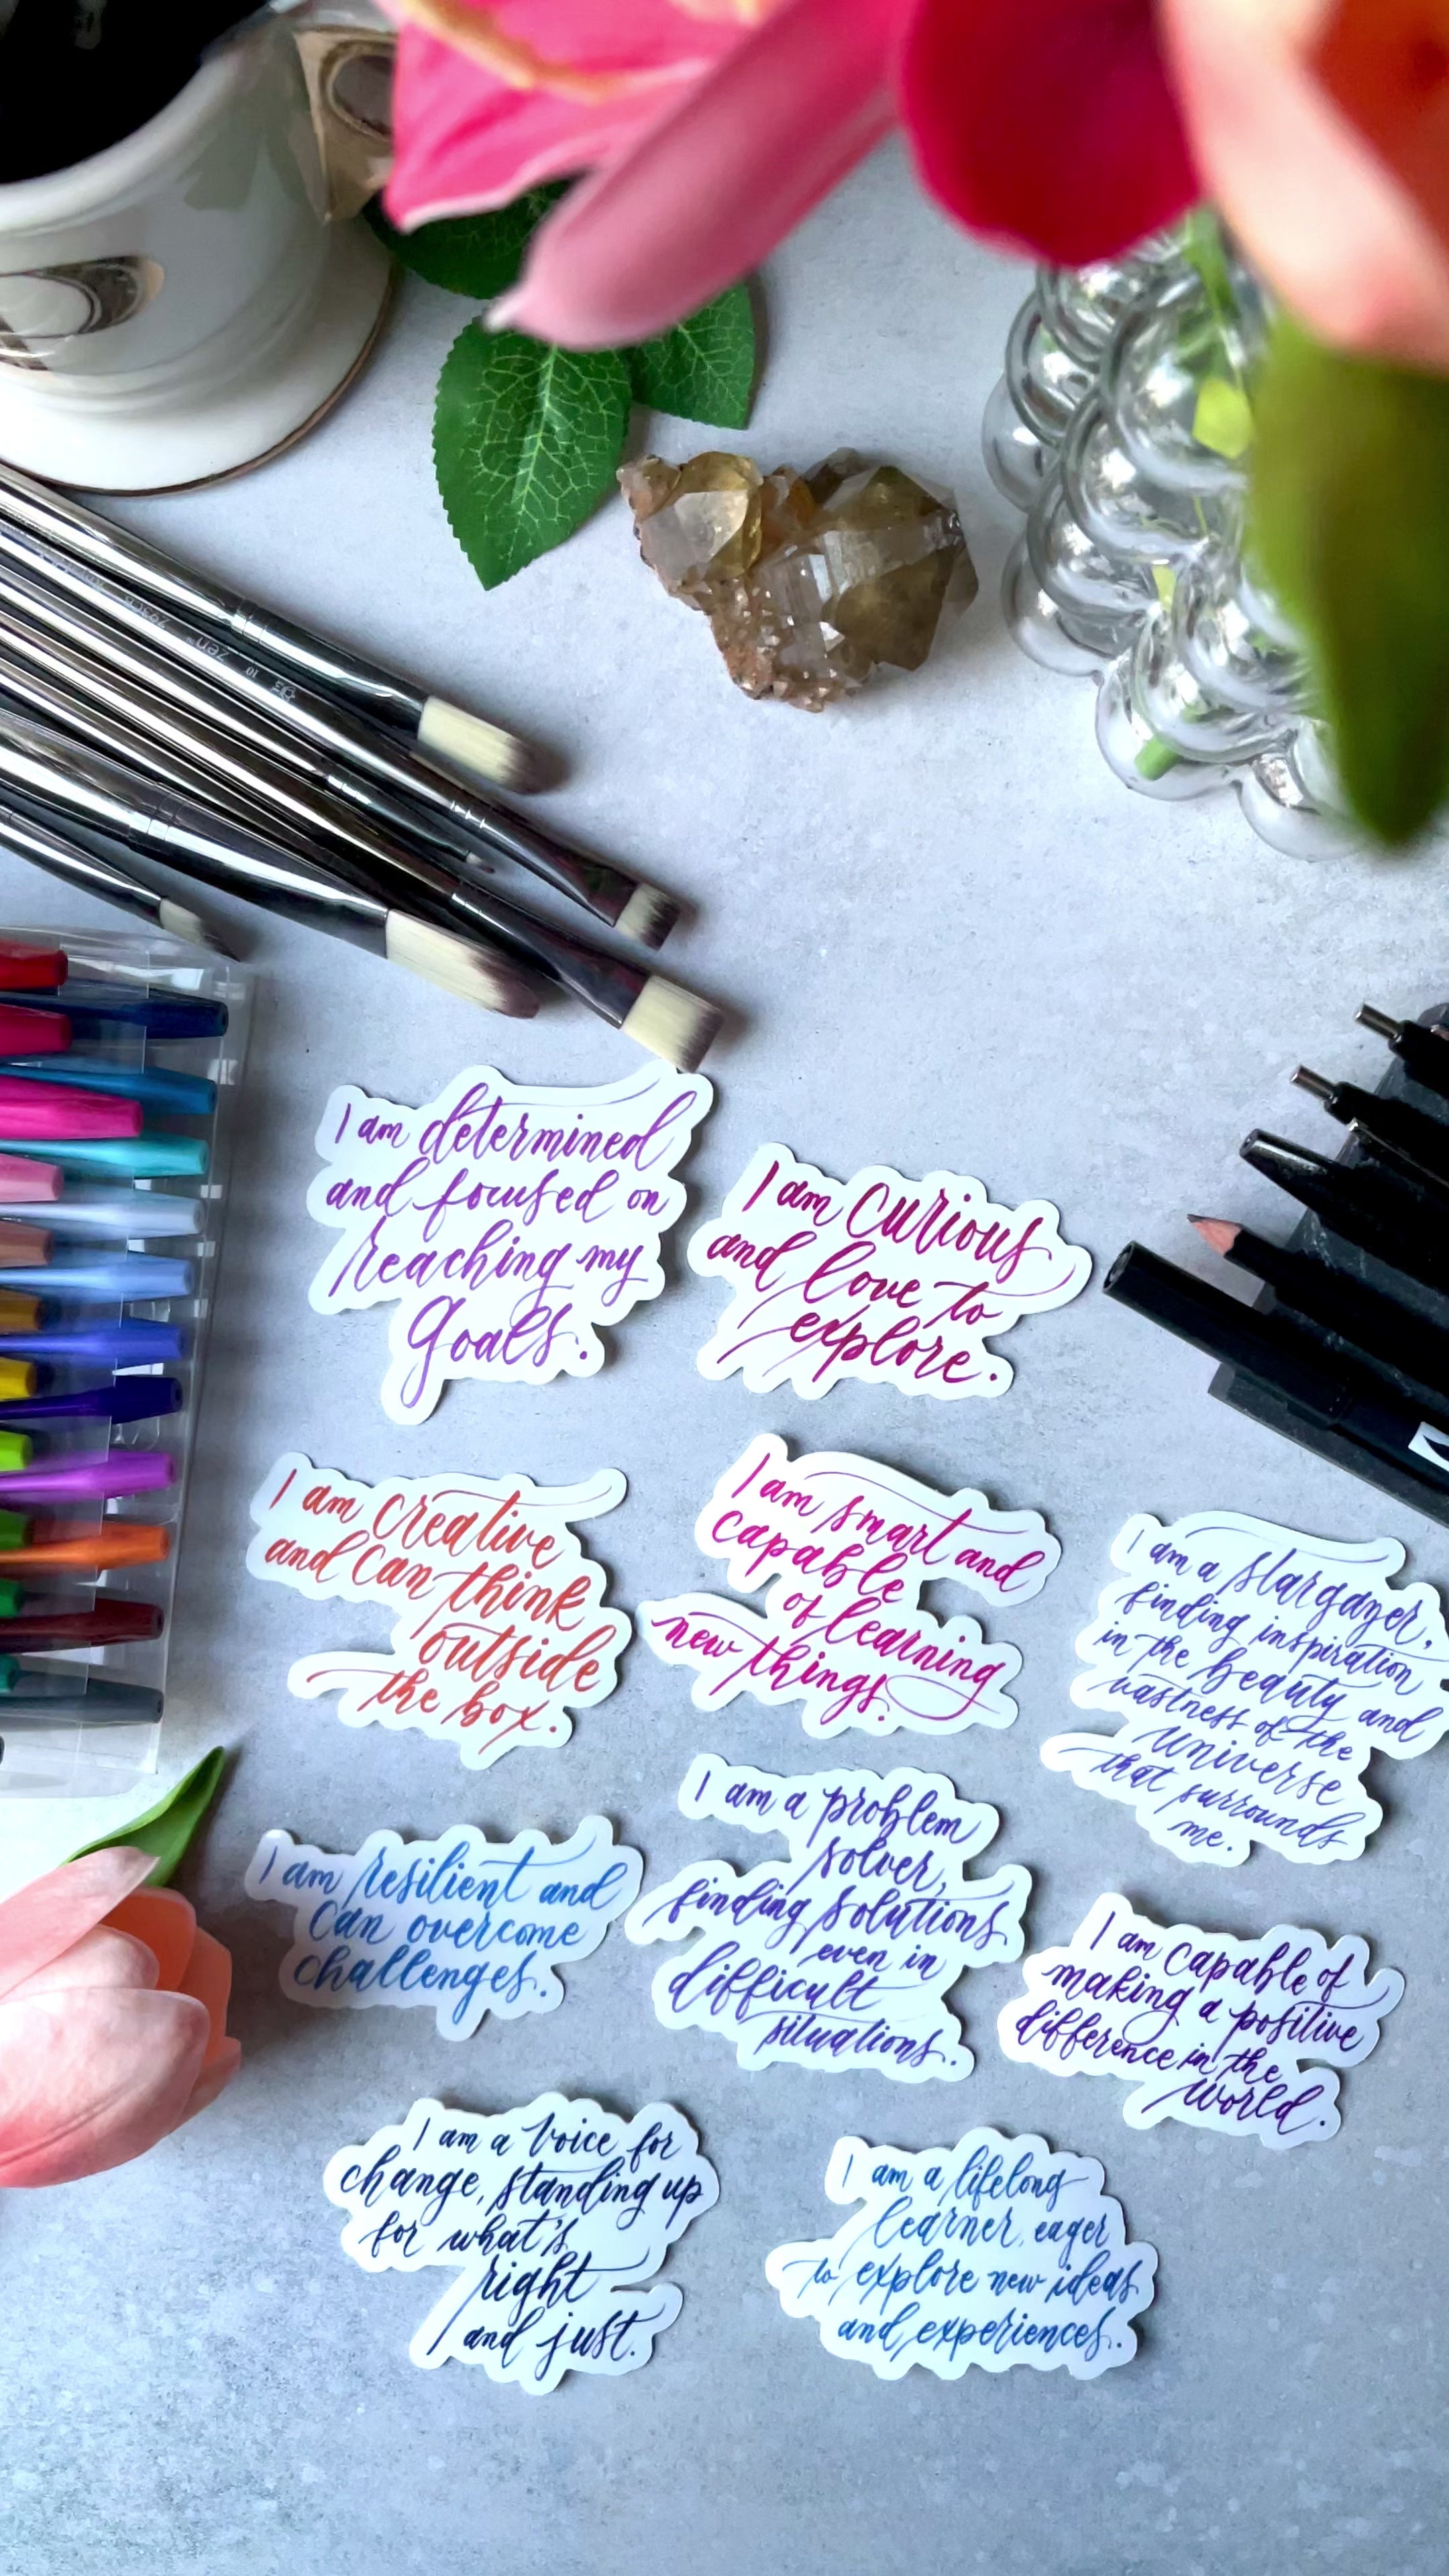 zen
10
I am determined
and focused on
reaching my
goals.
I am curious
and love to
explore.
I am creative
and can think
outside
the box.
I am smart and
capable
of learning
new things.
I am a stargazer,
finding inspiration
in the beauty and
vastness of the
universe
that surrounds
me.
I am resilient and
can overcome
challenges.
I am a problem
solver,
finding solutions
even in
difficult
situations.
I am capable of
making a positive
difference in the
world.
I am a voice for
change, standing up
for what's
right
and just.
I am a lifelong
learner, eager
to explore new ideas
and experiences.